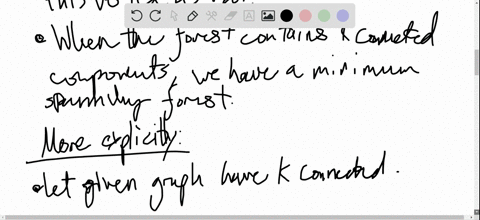 • When the forest contains k connected
components, we have a minimum
spanning forest.
More explicity:
• let given graph have k connected.